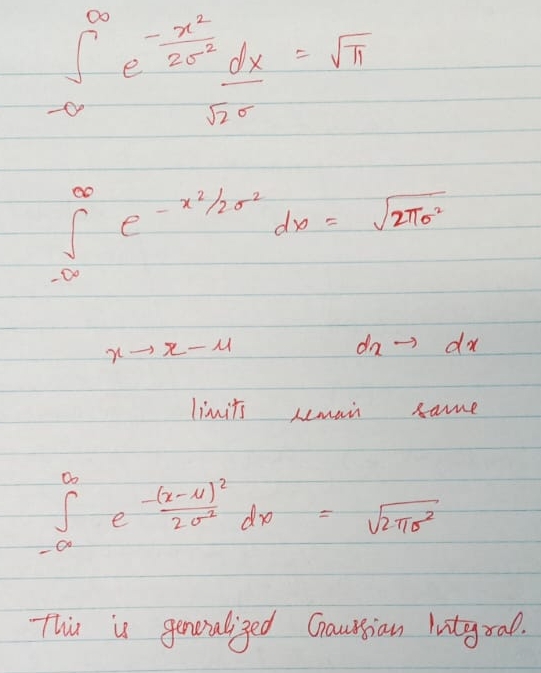 ∫_{-∞}^{∞} e^{-x²/2σ²} dx/√2σ = √π
∫_{-∞}^{∞} e^{-x²/2σ²} dx = √2πσ²
x → x-μ dx → dx
limits remain same
∫_{-∞}^{∞} e^{-(x-μ)²/2σ²} dx = √2πσ²
This is generalized Gaussian Integral.